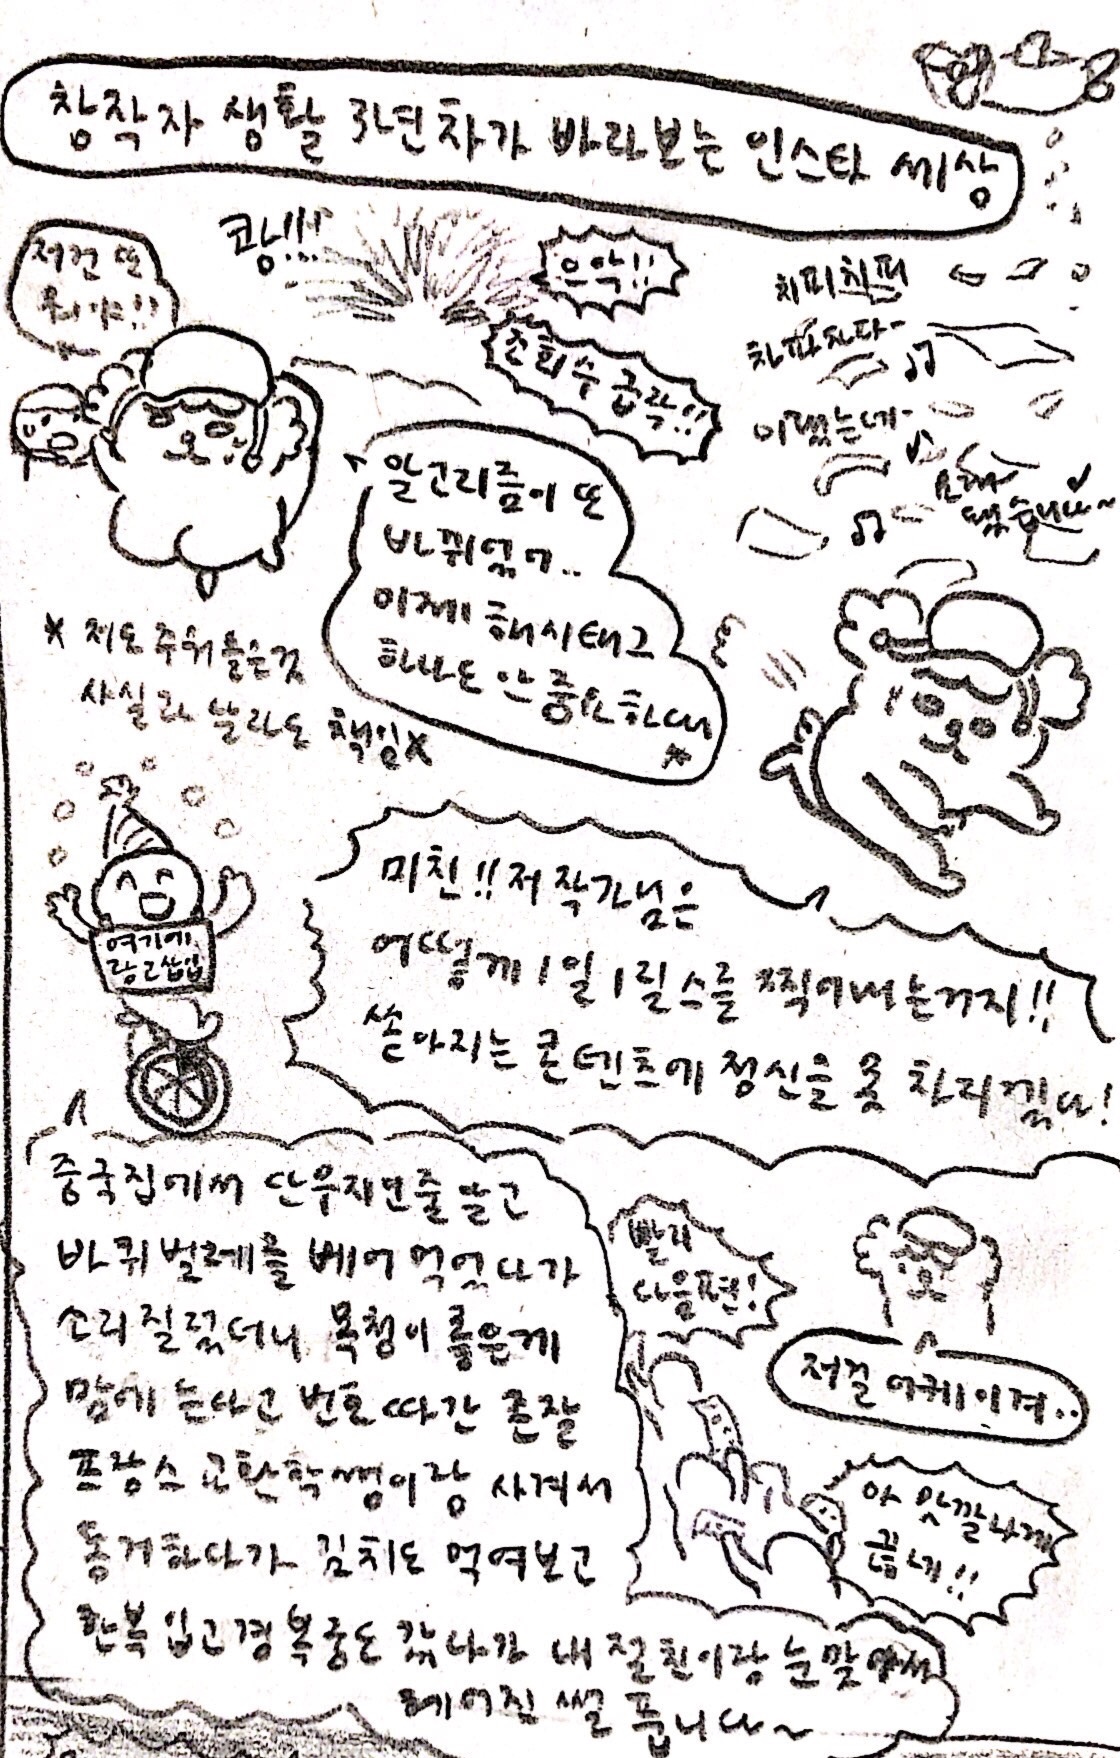 창작자 생활 3년차가 바라보는 인스타 세상
저건 또
뭐야!!
쾅!!!
으악!!
조회수 급락!!
치피치피
차파차파~
이랬는데~
요래
됐습니다~
알고리즘이 또
바뀌었어..
이제 해시태그
하나도 안 중요하대
*
* 저도 주워들은것
사실과 달라도 책임X
여기에
광고삽입
미친!! 저 작가님은
어떻게 1일1릴스를 찍어내는거지!!
쏟아지는 콘텐츠에 정신을 못 차리겠다!
중국집에서 단무지인줄 알고
바퀴벌레를 베어 먹었다가
소리질렀더니 목청이 좋은게
맘에 든다고 번호 따간 존잘
프랑스 교환학생이랑 사겨서
동거하다가 김치도 먹여보고
한복입고 경복궁도 갔다가 내 절친이랑 눈맞아서
헤어진 썰 풉니다~
빨리
다음편!
저걸 어케이겨..
아 맛깔나게
끊네!!